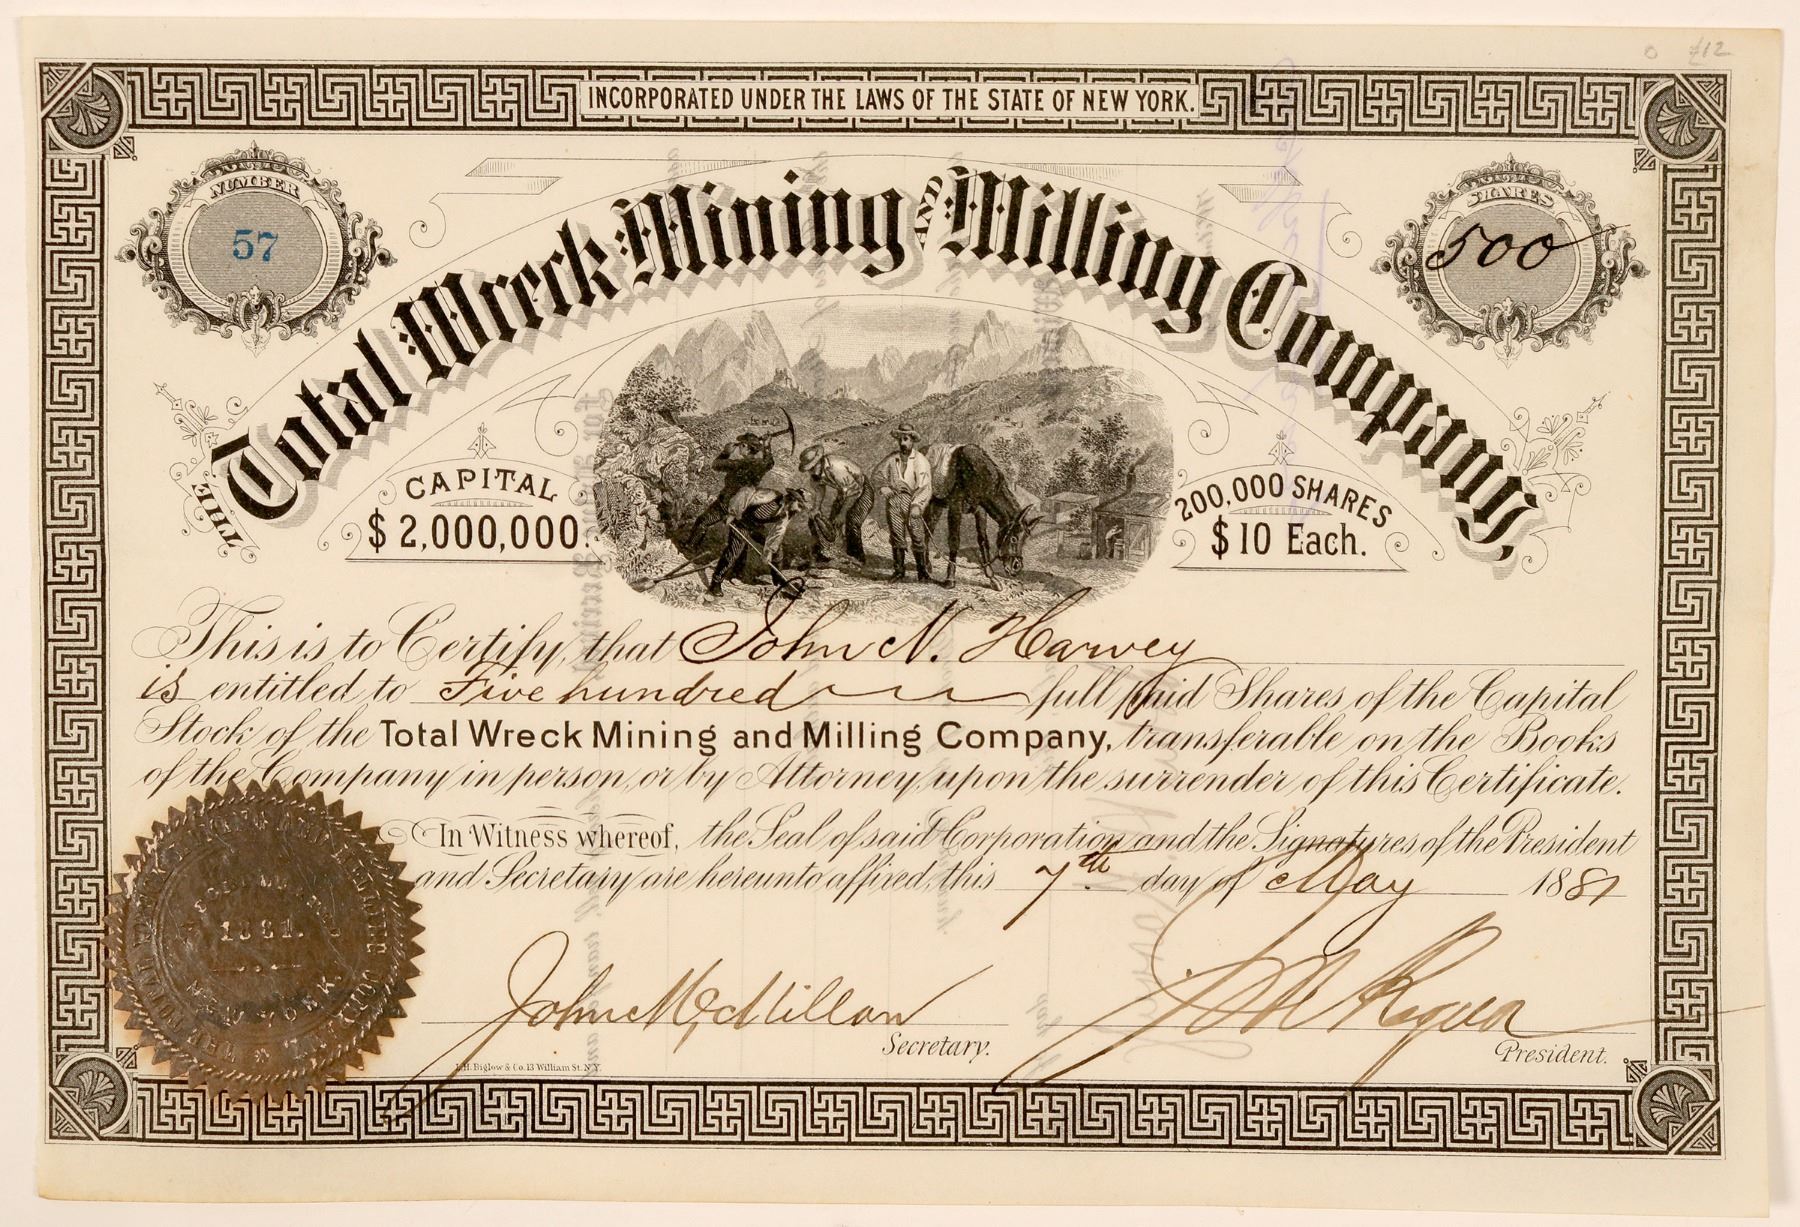 INCORPORATED UNDER THE LAWS OF THE STATE OF NEW YORK.
NUMBER
57
SHARES
500
THE
Total Wreck Mining and Milling Company,
CAPITAL
$ 2,000,000.
200,000 SHARES
$ 10 Each.
This is to Certify, that John N. Harvey
is entitled to Five hundred full paid Shares of the Capital
Stock of the Total Wreck Mining and Milling Company, transferable on the Books
of the Company in person, or by Attorney, upon the surrender of this Certificate.
In Witness whereof, the Seal of said Corporation and the Signatures of the President
and Secretary are hereunto affixed, this 7th day of May 1881
THE TOTAL WRECK MINING AND MILLING COMPANY
INCORPORATED
1881.
NEW YORK.
John McMillan
Secretary.
President.
L.H. Biglow & Co. 13 William St. N.Y.